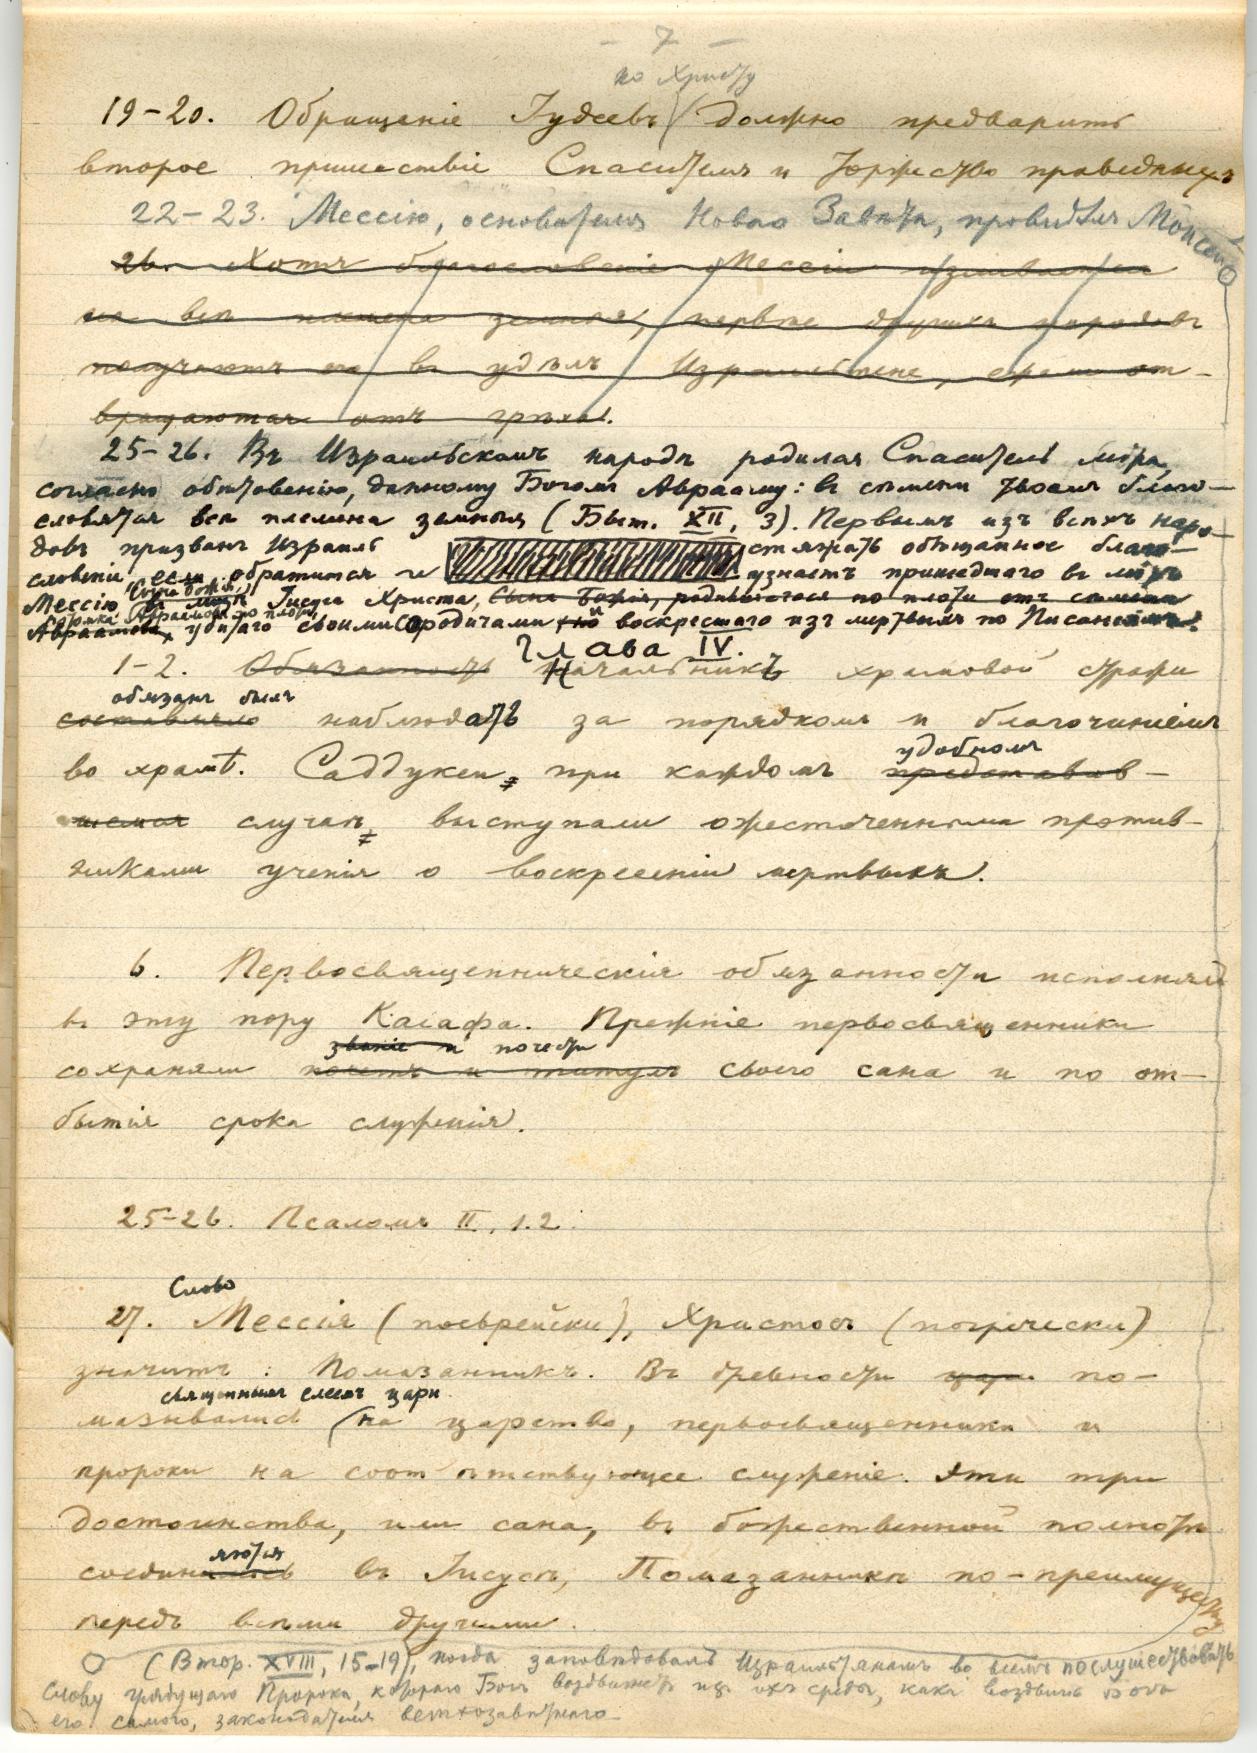 - 7 -
ко Христу
19-20. Обращеніе Іудеевъ должно предварить
второе пришествіе Спасителя и торжество праведныхъ
22-23. Мессію, основателя Новаго Завѣта, провидѣлъ Моисей
26. Хотя благословеніе Мессіи изливается
на всѣ племена земныя, первѣе другихъ народовъ
получаютъ его въ удѣлъ Израильтяне, если от-
вращаются отъ грѣха.
25-26. Въ Израильскомъ народѣ родился Спаситель міра,
согласно обѣтованію, данному Богомъ Аврааму: въ сѣмени твоемъ благо-
словятся всѣ племена земныя (Быт. XII, 3). Первымъ изъ всѣхъ наро-
довъ призванъ Израиль стяжать обѣщанное благо-
словеніе, если обратится и узнаетъ пришедшаго въ міръ
Сына Божія,
Мессію, въ Іисуса Христа, Сына Божія, родившагося по плоти отъ сѣмени
потомка Авраамова по плоти,
Авраамова, убитаго своими сродичами и воскресшаго изъ мертвыхъ по Писаніямъ.
Глава IV.
1-2. Обязанность Начальникъ храмовой стражи
обязанъ былъ
составляло наблюдать за порядкомъ и благочиніемъ
удобномъ
во храмѣ. Саддукеи, при каждомъ представив-
шемся случаѣ, выступали ожесточенными против-
никами ученія о воскресеніи мертвыхъ.
6. Первосвященническія обязанности исполнялъ
въ эту пору Каіафа. Прежніе первосвященники
званіе и почести
сохраняли почетъ и титулъ своего сана и по от-
бытія срока служенія.
25-26. Псаломъ II, 1.2.
Слово
27. Мессія (поеврейски), Христосъ (погречески)
значитъ: Помазанникъ. Въ древности цари по-
священнымъ елеемъ цари
мазывались на царство, первосвященники и
пророки на соотвѣтствующее служеніе. Эти три
достоинства, или сана, въ божественной полнотѣ
яются
соединились въ Іисусѣ, Помазанникѣ по-преимуществу
передъ всѣми другими.
(Втор. XVIII, 15-19), когда заповѣдовалъ Израильтянамъ во всемъ послушествовать
слову грядущаго Пророка, котораго Богъ воздвигнетъ изъ ихъ среды, какъ воздвигъ Богъ
его самого, законодателя ветхозавѣтнаго.